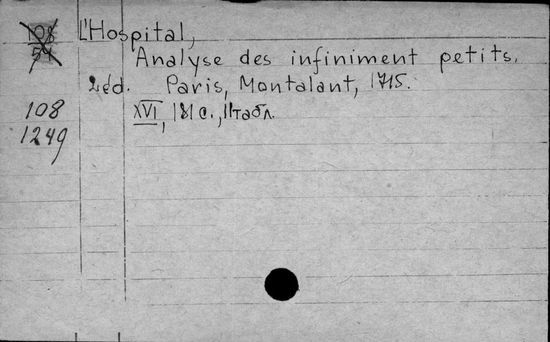 108
54
L'Hospital,
Analyse des infiniment petits.
2 éd. Paris, Montalant, 1715.
108
1249
XVI, 181 с., 11 табл.